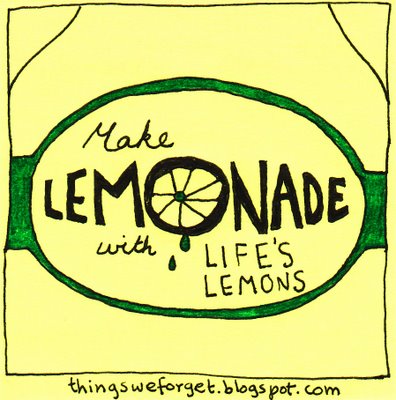 Make
LEMONADE
with LIFE'S
LEMONS
thingsweforget.blogspot.com